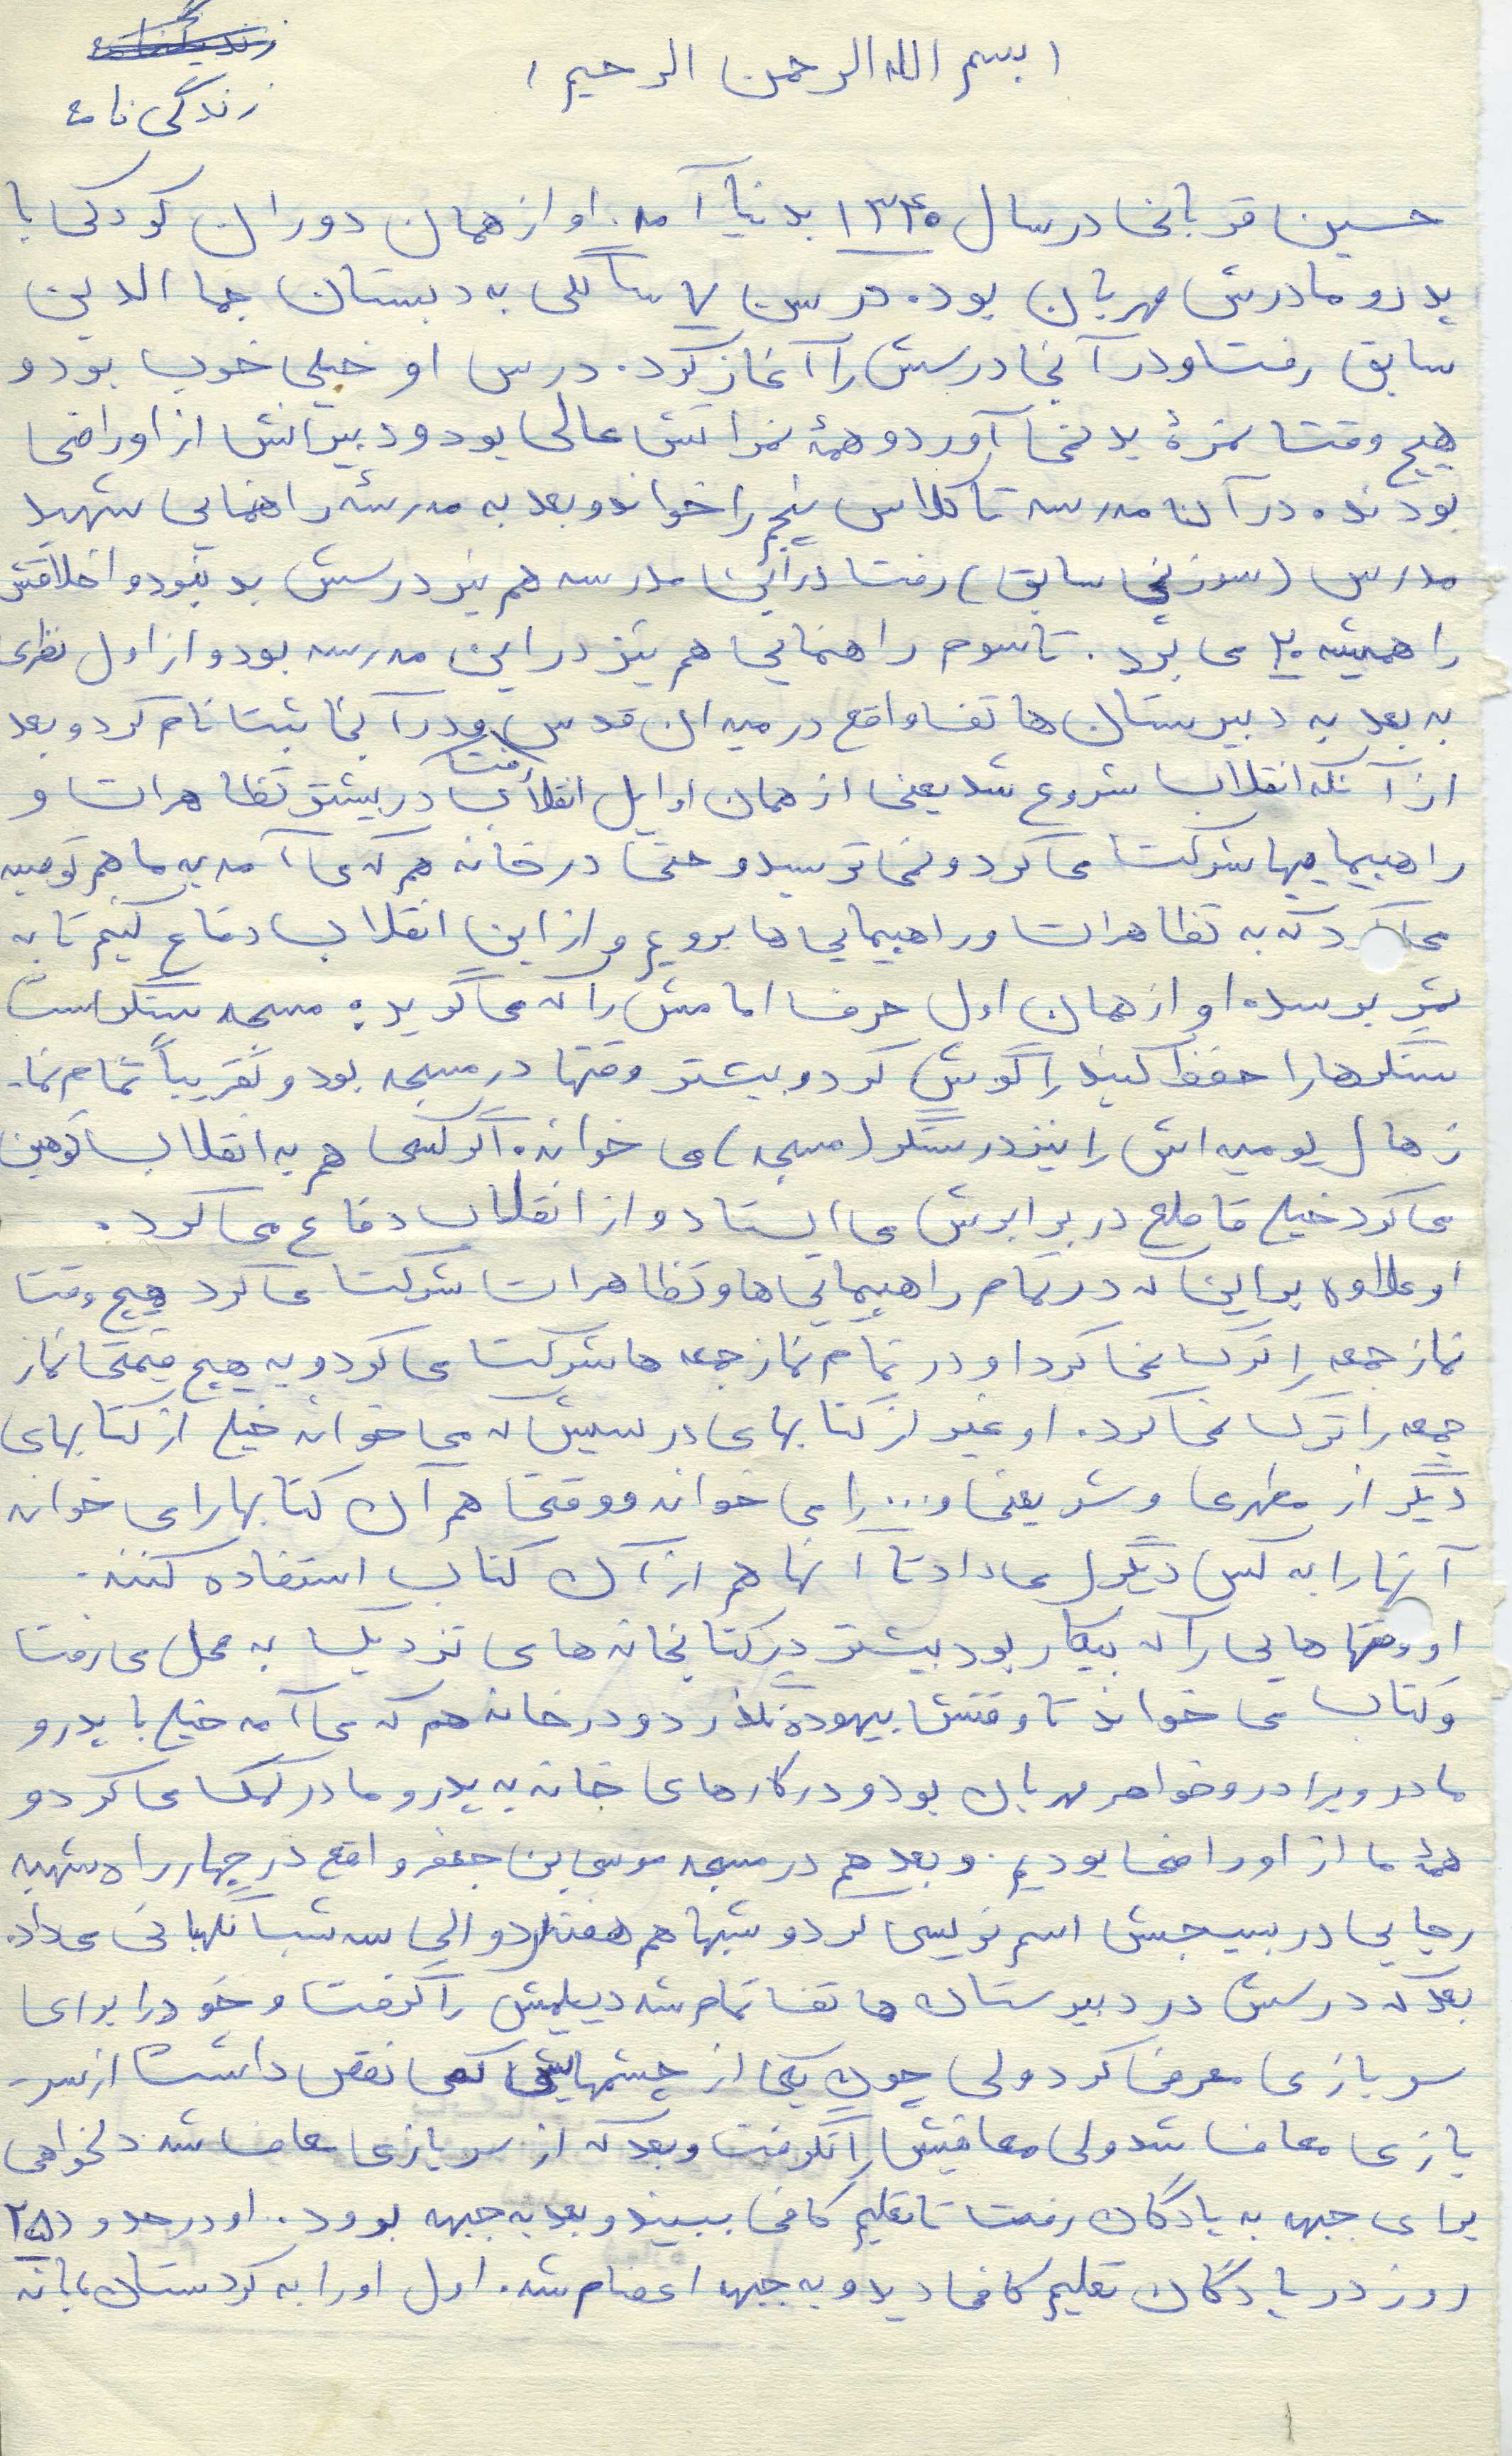 بسم الله الرحمن الرحیم
زندگی نامه
حسین قربانی در سال ۱۳۴۵ بدنیا آمد. او از همان دوران کودکی با
پدر و مادرش مهربان بود. در سن ۷ سالگی به دبستان جما الدین
سابق رفت و در آنجا درسش را آغاز کرد. درس او خیلی خوب بود و
هیچ وقت نمرهٔ بد نمی آورد و همهٔ نمراتش عالی بود و دبیرانش از او راضی
بودند. در آن مدرسه تا کلاس پنجم را خواند و بعد به مدرسه راهنمایی شهید
مدرس (سوزنی سابق) رفت در این مدرسه هم نیز درسش بد نبود و اخلاقش
را همیشه ۲۰ می برد. تا سوم راهنمایی هم نیز در این مدرسه بود و از اول نظری
به بعد به دبیرستان هاتف واقع در میدان قدس رفت و در آنجا ثبت نام کرد و بعد
از آنکه انقلاب شروع شد یعنی از همان اوایل انقلاب در بیشتر تظاهرات و
راهپیمایها شرکت می کرد و نمی ترسید و حتی در خانه هم که می آمد به ما هم توصیه
می کرد که به تظاهرات و راهپیمایی ها برویم و از این انقلاب دفاع کنیم تا به
ثمر برسد. او از همان اول حرف امامش را که می گوید: مسجد سنگر است
سنگرها را حفظ کنید را گوش کرد و بیشتر وقتها در مسجد بود و تقریباً تمام نما-
زهای یومیه اش را نیز در سنگر (مسجد) می خواند. اگر کسی هم به انقلاب توهین
می کرد خیلی قاطع در برابرش می ایستاد و از انقلاب دفاع می کرد.
او علاوه بر این که در تمام راهپیمایی ها و تظاهرات شرکت می کرد هیچ وقت
نماز جمعه را ترک نمی کرد او در تمام نماز جمعه ها شرکت می کرد و به هیچ قیمتی نماز
جمعه را ترک نمی کرد. او غیر از کتابهای درسیش که می خواند خیلی از کتابهای
دیگر از مطهری و شریعتی و... را می خواند و وقتی هم آن کتابها را می خواند
آنها را به کس دیگری می داد تا آنها هم از آن کتاب استفاده کنند.
او وقتها هایی را که بیکار بود بیشتر در کتابخانه های نزدیک به محل می رفت
و کتاب می خواند تا وقتش بیهوده نگذرد و در خانه هم که می آمد خیلی با پدر و
مادر و برادر و خواهر مهربان بود و در کارهای خانه به پدر و مادر کمک می کرد و
همهٔ ما از او راضی بودیم. و بعد هم در مسجد موسی بن جعفر واقع در چهارراه شهید
رجایی در بسیجش اسم نویسی کرد و شبها هم هفته ای دو الی سه شب نگهبانی می داد.
بعد که درسش در دبیرستان هاتف تمام شد دیپلمش را گرفت و خود را برای
سربازی معرفی کرد ولی چون یکی از چشمهایش کمی نقص داشت از سر-
بازی معاف شد ولی معافیش را نگرفت و بعد که از سربازی معاف شد دلخواهی
برای جبهه به پادگان رفت تا تعلیم کافی ببیند و بعد به جبهه برود. او در حدود ۲۵
روز در پادگان تعلیم کافی دید و به جبهه اعضام شد. اول او را به کردستان، بانه